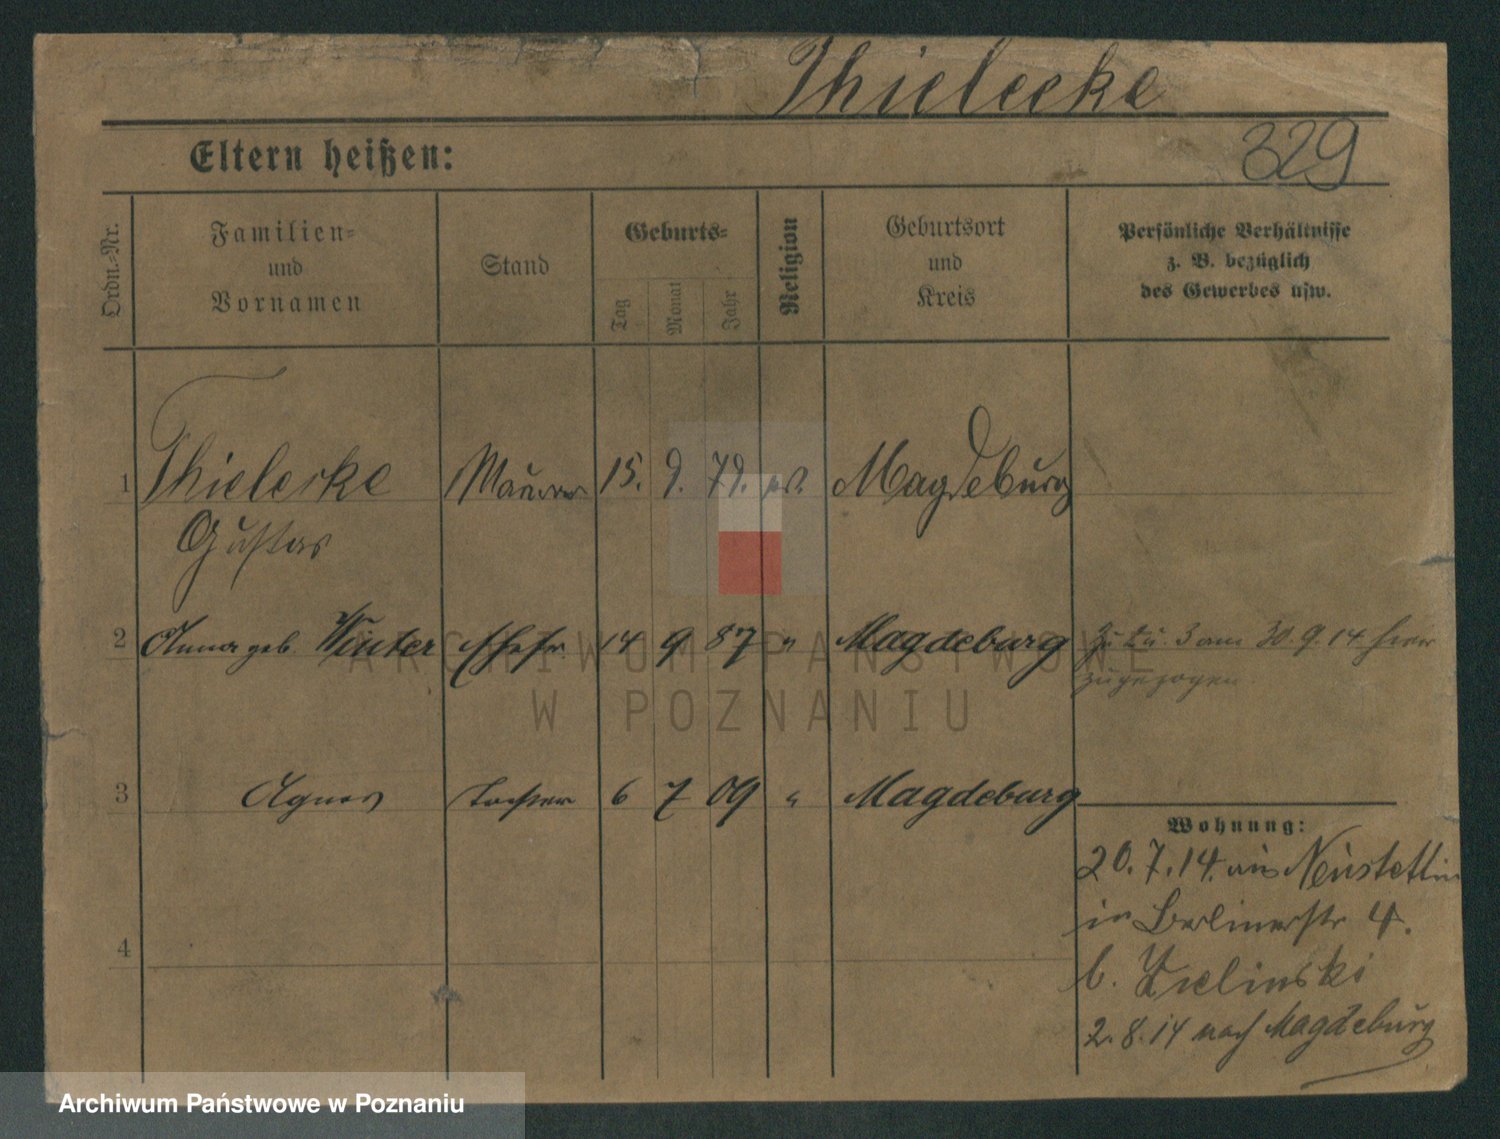 Thielecke
Eltern heißen:
329
Ordn.-Nr.
Familien-
und
Vornamen
Stand
Geburts-
Tag
Monat
Jahr
Religion
Geburtsort
und
Kreis
Persönliche Verhältnisse
z. B. bezüglich
des Gewerbes usw.
1 Thielecke Maurer 15. 9. 79. ev. Magdeburg
Gustav
2 Anna geb. Winter Ehefr. 14 9 87 " Magdeburg Zu 2 u. 3 am 30.9.14 hier
zugezogen
3 Agnes Tochter 6 7 09 " Magdeburg
Wohnung:
20.7.14. aus Neustettin
in Berlinerstr 4.
b. Zielinski
4
2.8.14 nach Magdeburg
ARCHIWUM PAŃSTWOWE
W POZNANIU
Archiwum Państwowe w Poznaniu